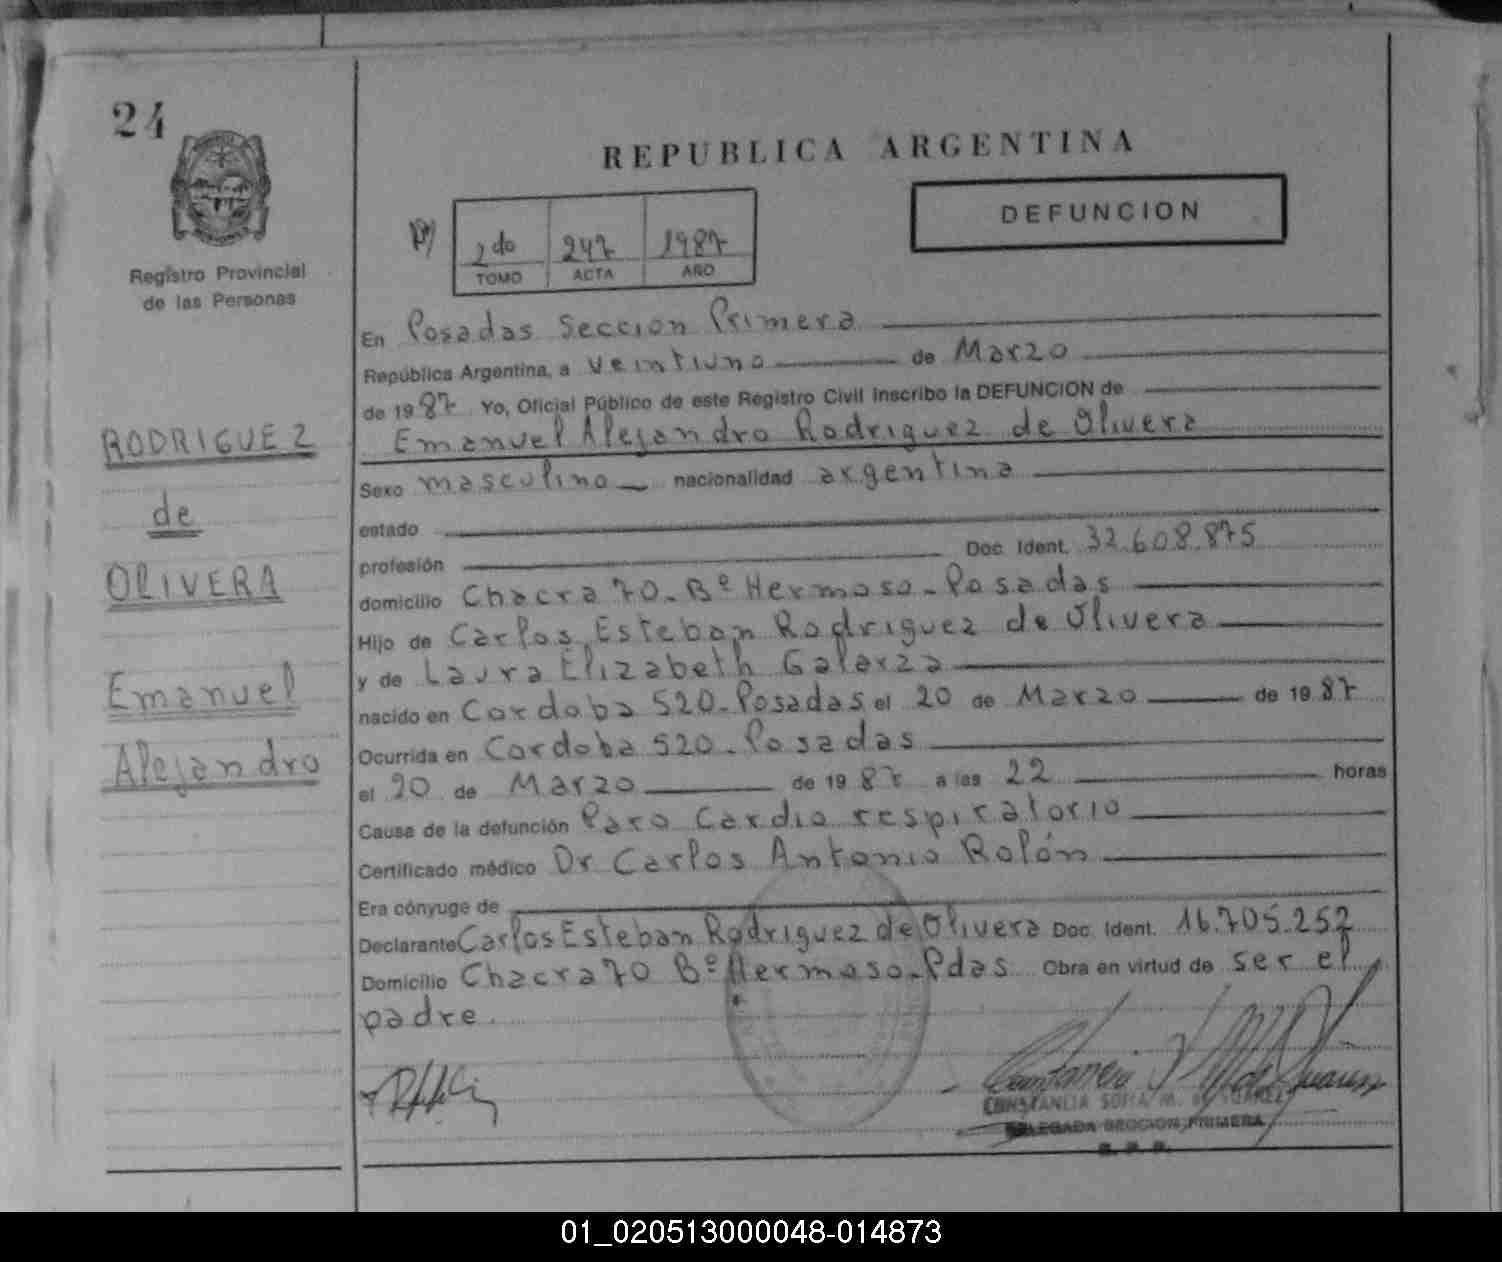 24
Registro Provincial
de las Personas
REPUBLICA ARGENTINA
DEFUNCION
2do 247 1987
TOMO ACTA AÑO
RODRIGUEZ
de
OLIVERA
Emanuel
Alejandro
En Posadas Seccion Primera
República Argentina, a veintiuno de Marzo
de 1987 Yo, Oficial Público de este Registro Civil inscribo la DEFUNCION de
Emanuel Alejandro Rodriguez de Olivera
Sexo masculino nacionalidad argentina
estado
profesión Doc. Ident. 32.608.875
domicilio Chacra 70-Bº Hermoso-Posadas
Hijo de Carlos Esteban Rodriguez de Olivera
y de Laura Elizabeth Galarza
nacido en Cordoba 520-Posadas el 20 de Marzo de 1987
Ocurrida en Cordoba 520-Posadas
el 20 de Marzo de 1987 a las 22 horas
Causa de la defunción Paro Cardio respiratorio
Certificado médico Dr Carlos Antonio Rolón
Era cónyuge de
Declarante Carlos Esteban Rodriguez de Olivera Doc. Ident. 16.705.252
Domicilio Chacra 70 Bº Hermoso-Pdas Obra en virtud de ser el
padre.
CONSTANCIA SOFIA M. de SUAREZ
DELEGADA SECCION PRIMERA
R. P. P.
01_020513000048-014873